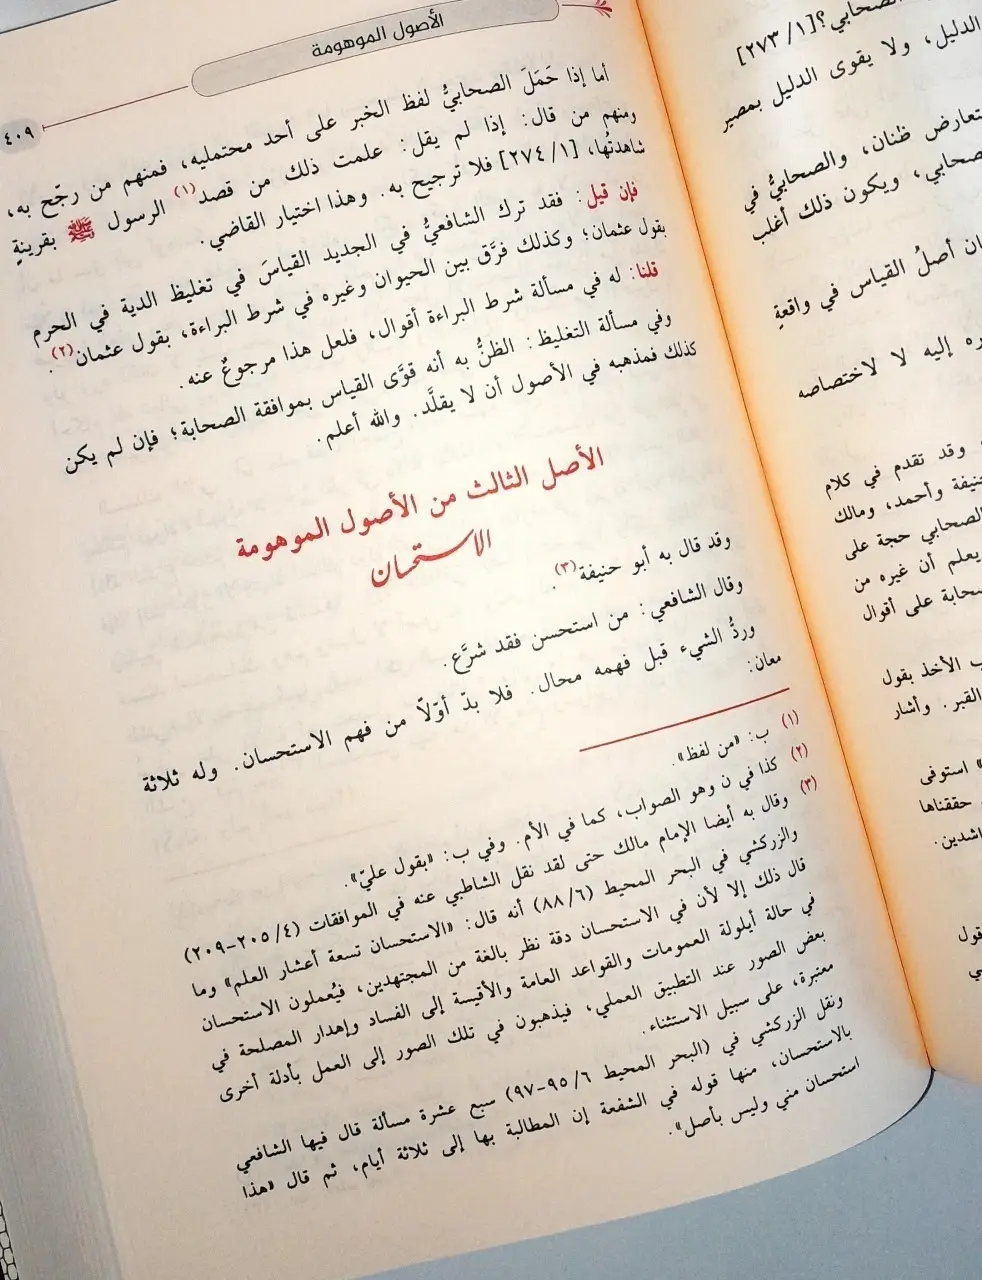 الصحابي؟[١/ ٢٧٣]
الدليل، ولا يقوى الدليل بمصير
تعارض ظنان، والصحابيُّ في
ويكون ذلك أغلب
أصلُ القياس في واقعةٍ
إليه لا لاختصاصه
وقد تقدم في كلام
وأحمد، ومالك
الصحابي حجة على
يعلم أن غيره من
على أقوال
الأخذ بقول
القبر. وأشار
استوفى
حققناها
الأصول الموهومة
٤٠٩
أما إذا حَمَلَ الصحابيُّ لفظ الخبر على أحد محتمليه، فمنهم من رجّح به،
ومنهم من قال: إذا لم يقل: علمت ذلك من قصد(١) الرسول ﷺ بقرينةٍ
شاهدتُها، [١/ ٢٧٤] فلا ترجيح به. وهذا اختيار القاضي.
فإن قيل: فقد ترك الشافعيُّ في الجديد القياسَ في تغليظ الدية في الحرم
بقول عثمان؛ وكذلك فرَّق بين الحيوان وغيره في شرط البراءة، بقول عثمان(٢).
قلنا: له في مسألة شرط البراءة أقوال، فلعل هذا مرجوعٌ عنه.
وفي مسألة التغليظ: الظنُّ به أنه قوَّى القياس بموافقة الصحابة؛ فإن لم يكن
كذلك فمذهبه في الأصول أن لا يقلَّد. والله أعلم.
الأصل الثالث من الأصول الموهومة
الاستحسان
وقد قال به أبو حنيفة(٣).
وقال الشافعي: من استحسن فقد شرَّع.
وردُّ الشيء قبل فهمه محال. فلا بدّ أوّلاً من فهم الاستحسان. وله ثلاثة
معان:
(١) ب: «من لفظ».
(٢) كذا في ن وهو الصواب، كما في الأم. وفي ب: «بقول عليّ».
(٣) وقال به أيضا الإمام مالك حتى لقد نقل الشاطبي عنه في الموافقات (٤/ ٢٠٥-٢٠٩)
والزركشي في البحر المحيط (٦/ ٨٨) أنه قال: «الاستحسان تسعة أعشار العلم» وما
قال ذلك إلا لأن في الاستحسان دقة نظر بالغة من المجتهدين، فيُعملون الاستحسان
في حالة أيلولة العمومات والقواعد العامة والأقيسة إلى الفساد وإهدار المصلحة في
بعض الصور عند التطبيق العملي، فيذهبون في تلك الصور إلى العمل بأدلة أخرى
معتبرة، على سبيل الاستثناء.
ونقل الزركشي في (البحر المحيط ٦/ ٩٥-٩٧) سبع عشرة مسألة قال فيها الشافعي
بالاستحسان، منها قوله في الشفعة إن المطالبة بها إلى ثلاثة أيام، ثم قال «هذا
استحسان مني وليس بأصل».